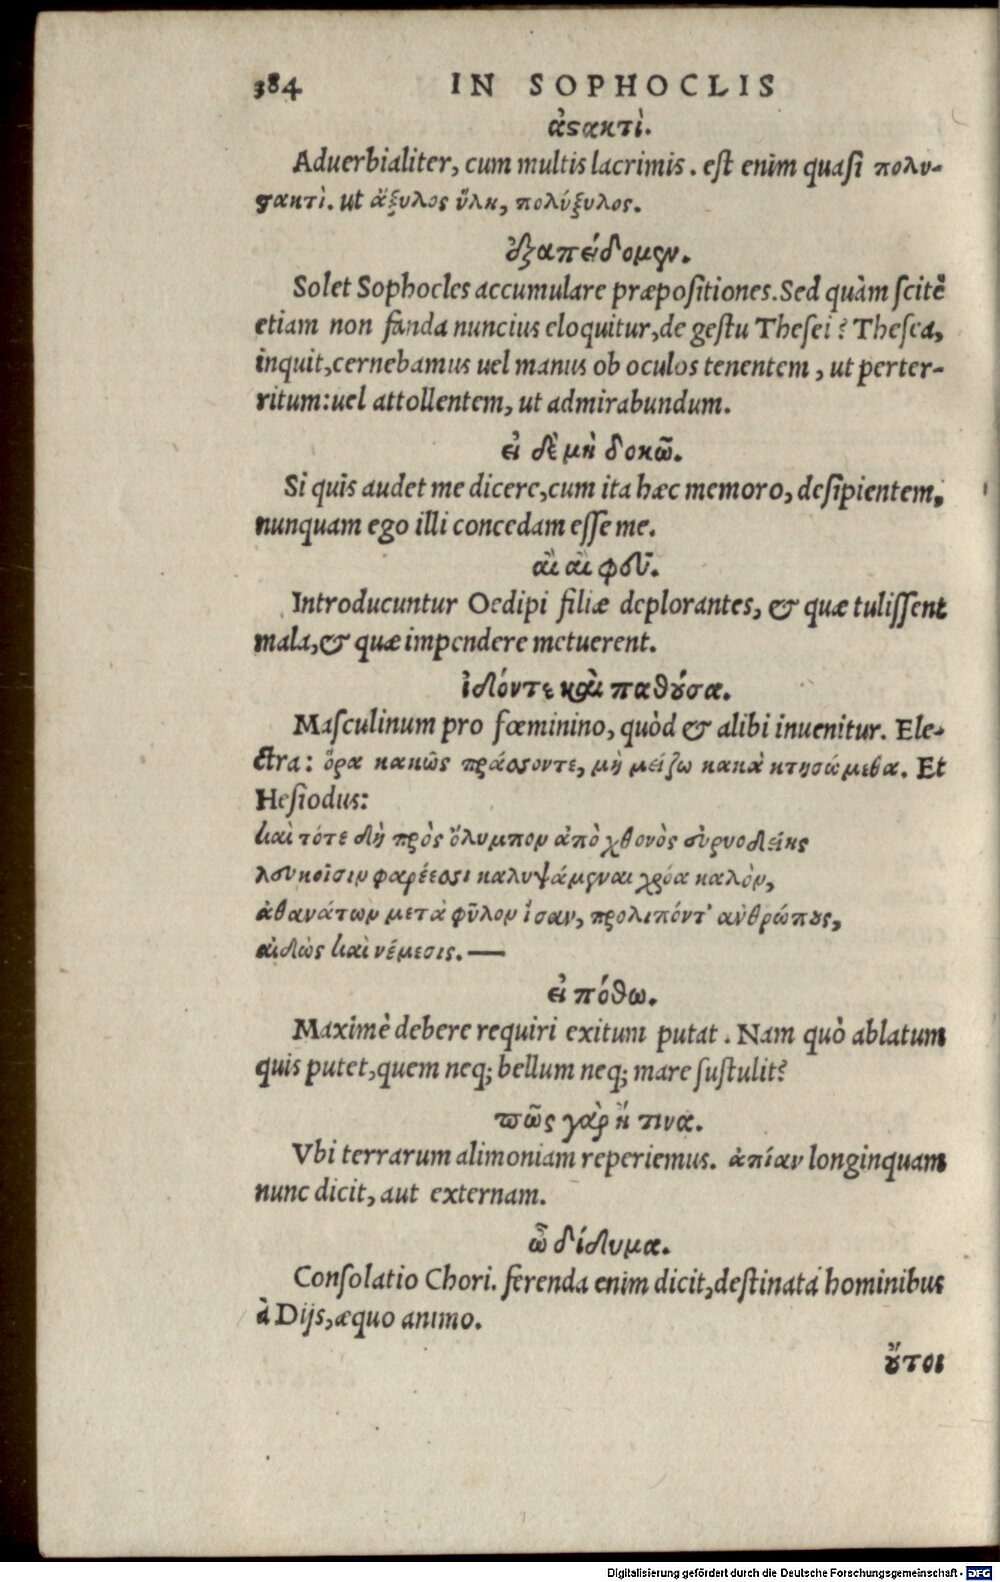 384 IN SOPHOCLIS
ἀςακτὶ.
Aduerbialiter, cum multis lacrimis. est enim quasi πολυ-
ςακτὶ. ut ἄξυλος ὕλη, πολύξυλος.
ἐξαπείδομεν.
Solet Sophocles accumulare præpositiones. Sed quàm scitè
etiam non fanda nuncius eloquitur, de gestu Thesei? Thesea,
inquit, cernebamus uel manus ob oculos tenentem, ut perter-
ritum: uel attollentem, ut admirabundum.
εἰ δὲ μὴ δοκῶ.
Si quis audet me dicere, cum ita hæc memoro, desipientem,
nunquam ego illi concedam esse me.
αἲ αἲ φεῦ.
Introducuntur Oedipi filiæ deplorantes, & quæ tulissent
mala, & quæ impendere metuerent.
ἰδόντε καὶ παθούσα.
Masculinum pro fœminino, quòd & alibi inuenitur. Ele-
ctra: ὅρα κακῶς πράσσοντε, μὴ μείζω κακὰ κτησώμεθα. Et
Hesiodus:
καὶ τότε δὴ πρὸς ὄλυμπον ἀπὸ χθονὸς εὐρυοδείης
λευκοῖσιν φαρέεσσι καλυψάμεναι χρόα καλὸν,
ἀθανάτων μετὰ φῦλον ἴσαν, προλιπόντ' ἀνθρώπους,
αἰδὼς καὶ νέμεσις. —
εἰ πόθῳ.
Maximè debere requiri exitum putat. Nam quò ablatum
quis putet, quem neq; bellum neq; mare sustulit?
πῶς γὰρ ἤ τινα.
Vbi terrarum alimoniam reperiemus. ἀπίαν longinquam
nunc dicit, aut externam.
ὦ δίδυμα.
Consolatio Chori. ferenda enim dicit, destinata hominibus
à Dijs, æquo animo.
οὔτοι
Digitalisierung gefördert durch die Deutsche Forschungsgemeinschaft - DFG